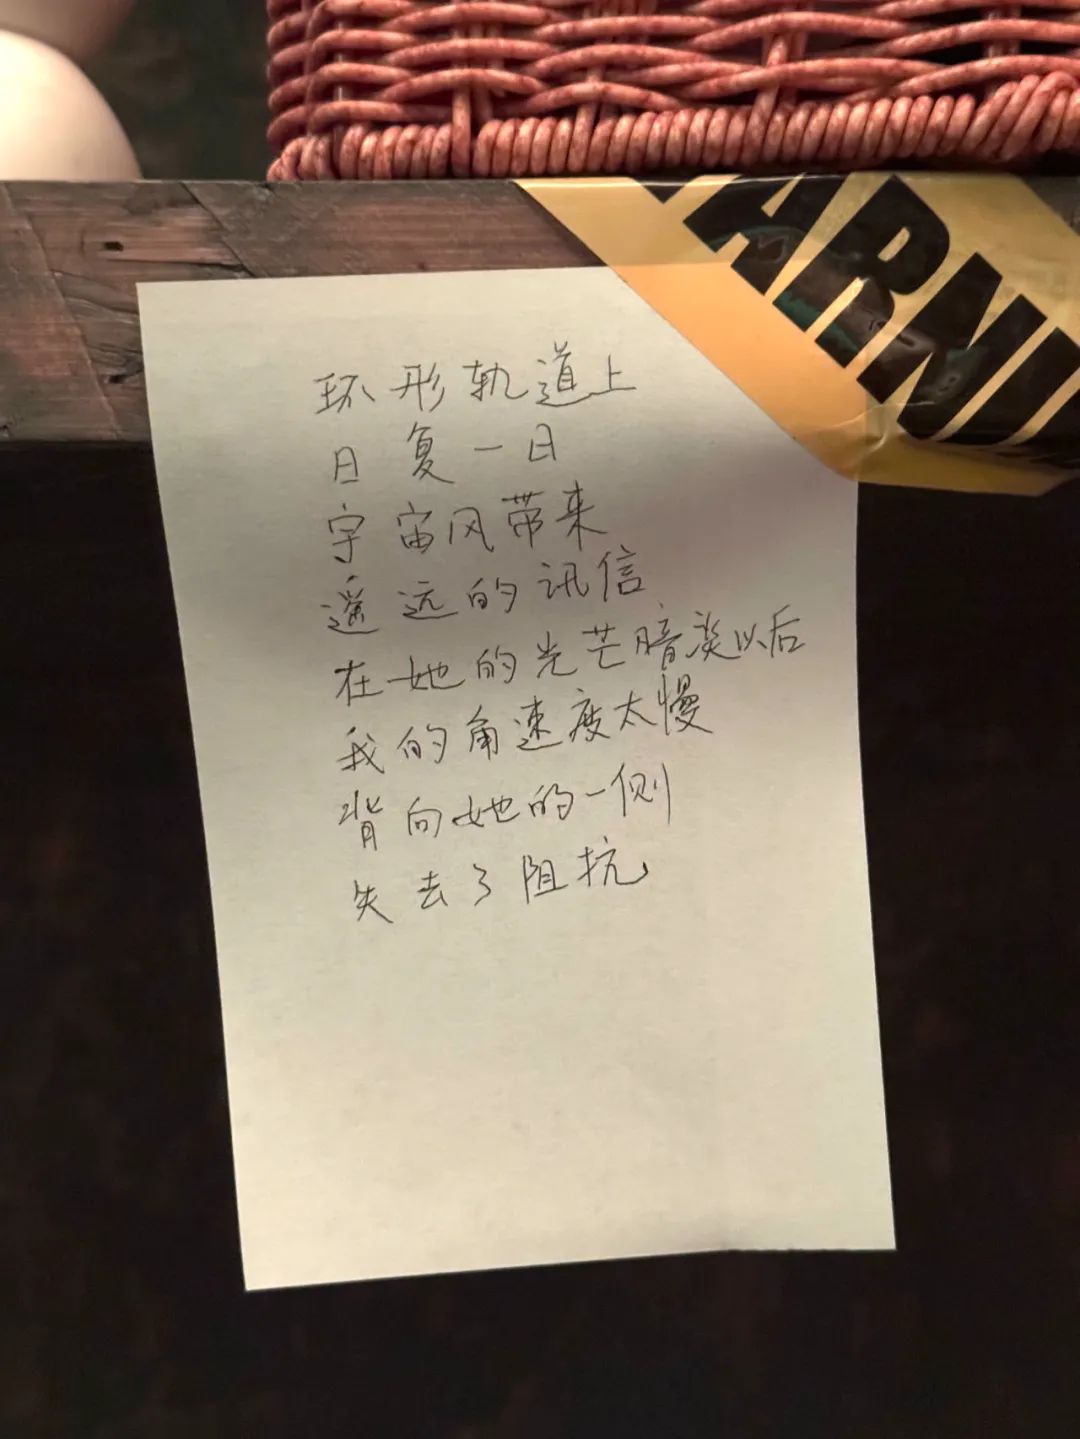 ARNI
环形轨道上
日复一日
宇宙风带来
遥远的讯信
在她的光芒暗淡以后
我的角速度太慢
背向她的一侧
失去了阻抗